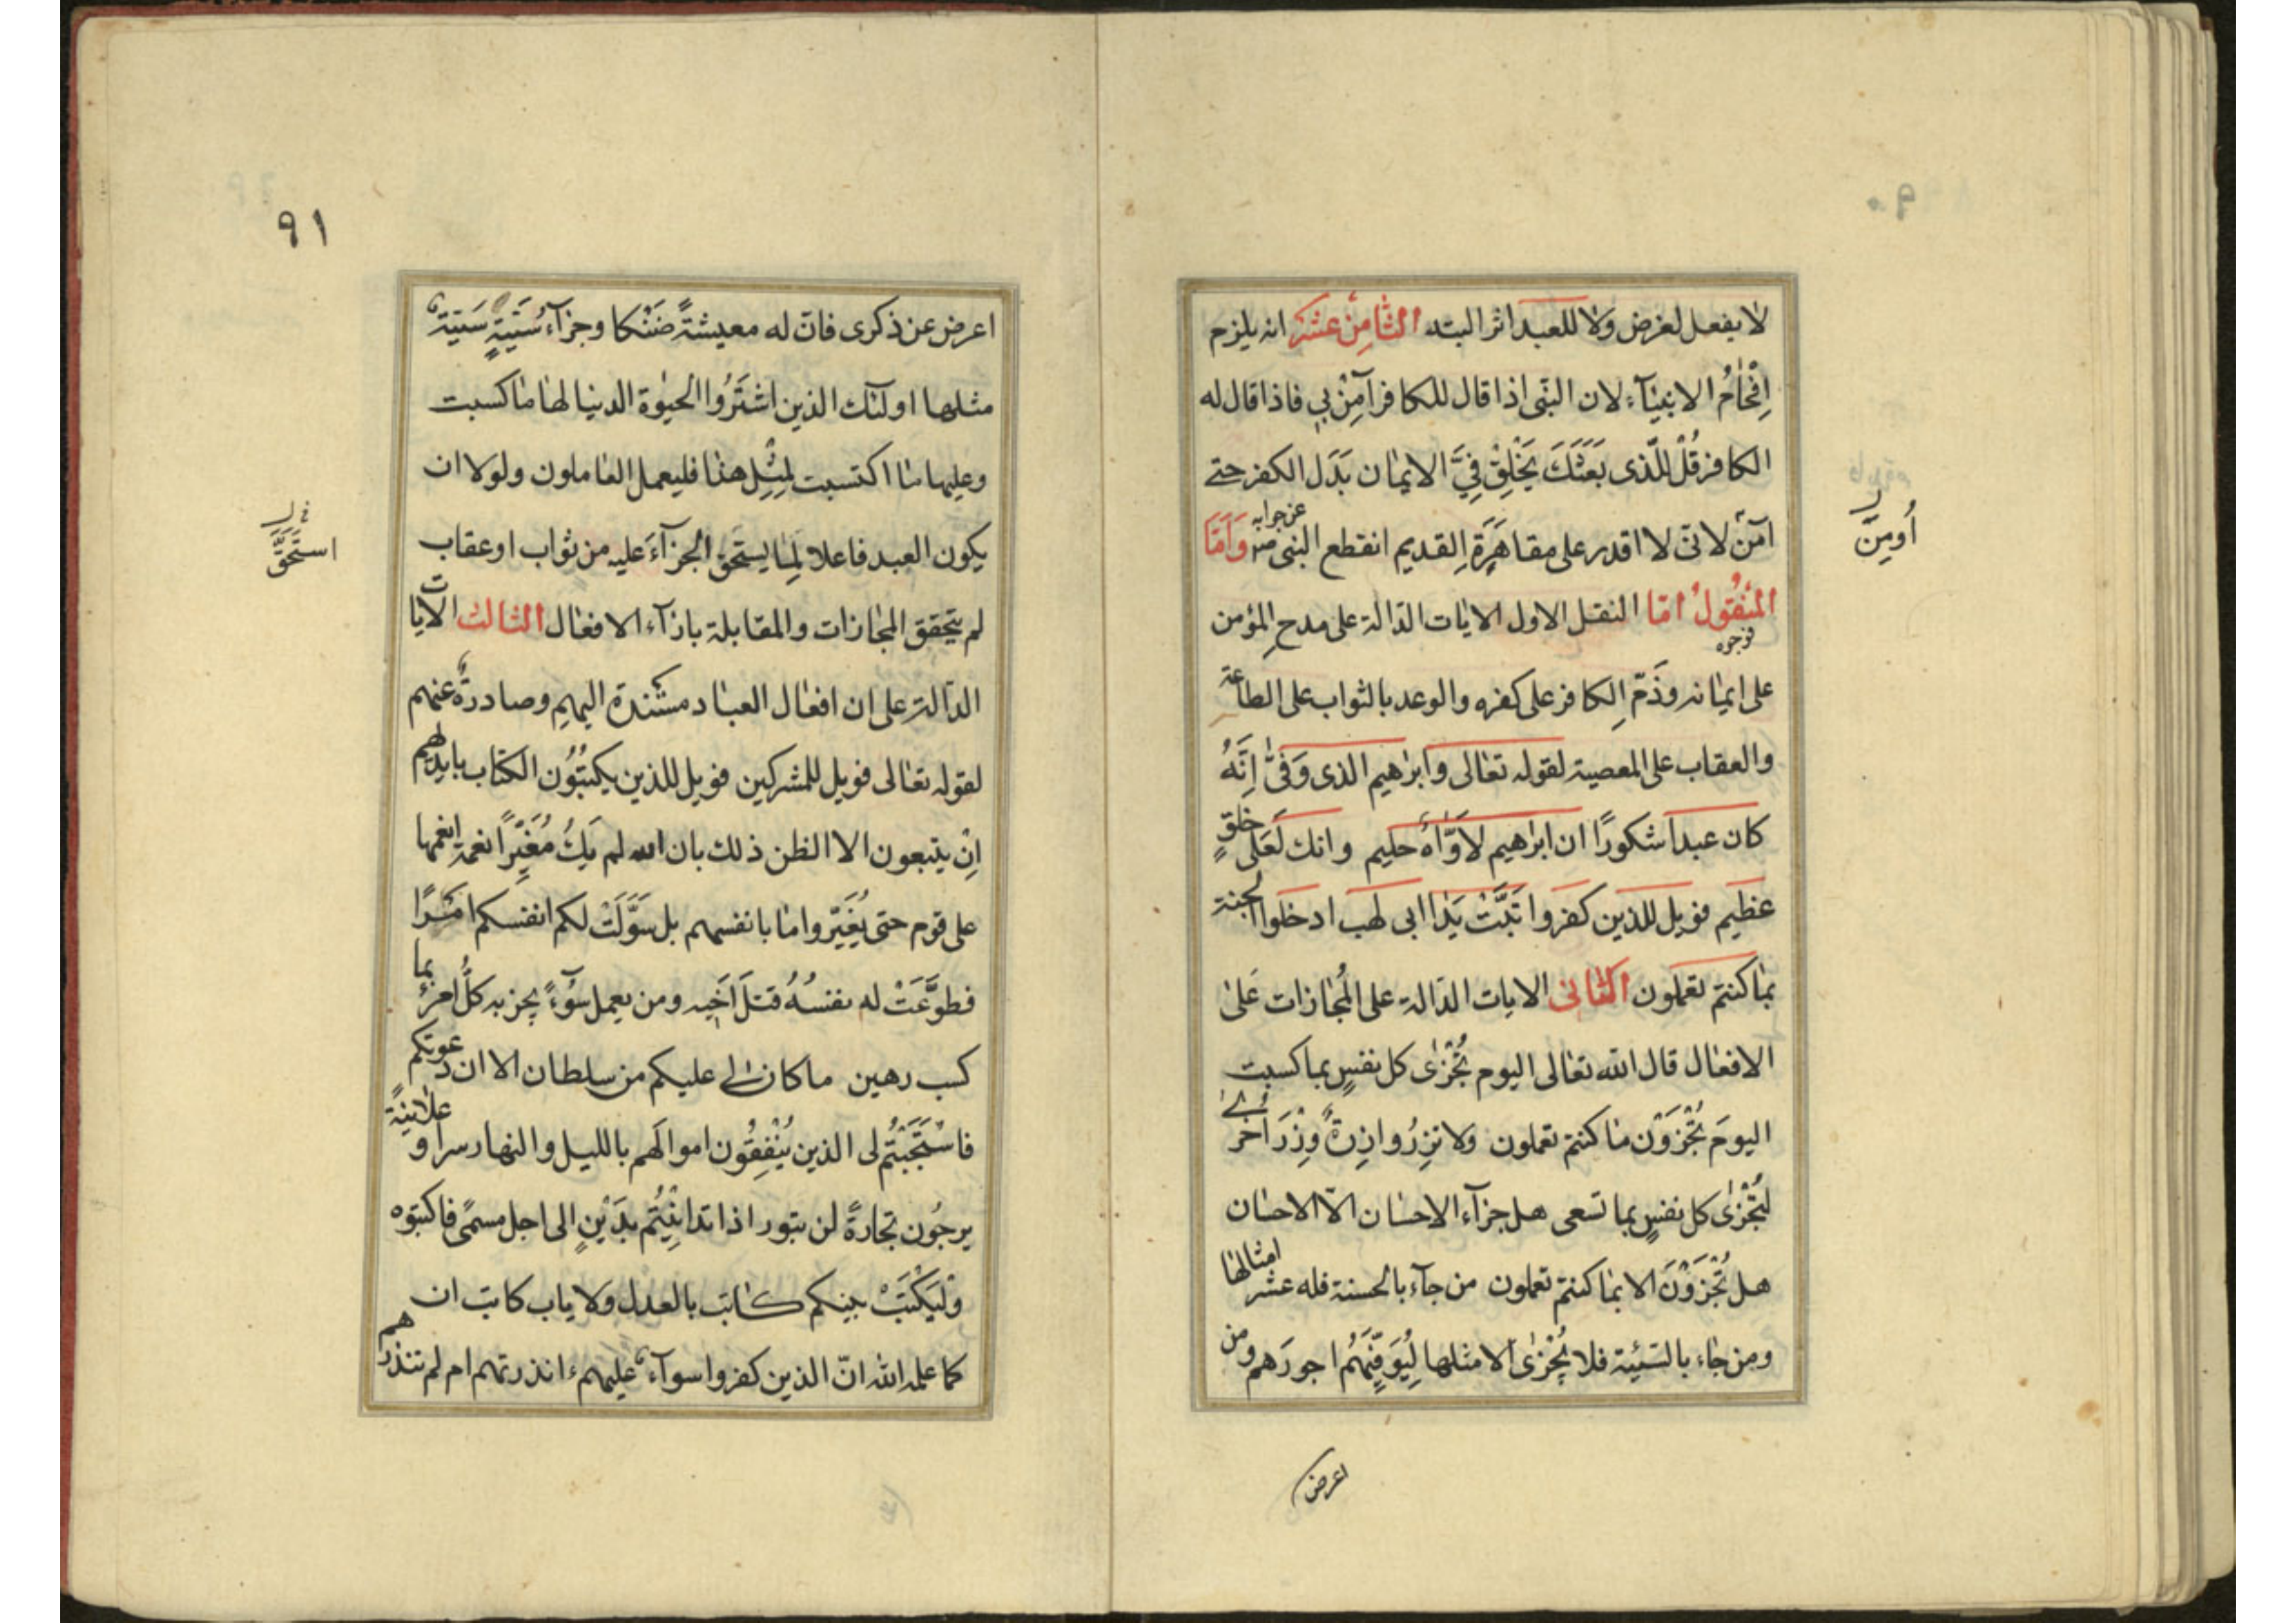 لا يفعل لغرض ولا للعبد اثر البته الثامِنْ عشَرَ انه يلزم
اِفْحٰامُ الانبيٰآء لان النّبى اذا قال للكافر آمِنْ بي فاذا قال له
الكافر قُلْ للّذى بَعَثَكَ يَخْلِقْ فِيَّ الايمٰان بَدَل الكفر حتى
آمنَ لانّى لا اقدر على مقاهَرَةِ القديم انقطع النبى منه وَاَمَّا
عن جوابه
اُومِنَ
المنْقُولُ امّا النقل الاول الايٰات الدّالة على مدحِ المؤمن
فوجوه
على ايمٰانه وذَمّ الكافر على كفره والوعد بالثواب على الطاعة
والعقاب على المعصية لقوله تعٰالى وابرٰهيم الذى وَفّىٰ اِنَّهُ
كان عبدا شكورًا ان ابرٰهيم لَاَوّٰاهٌ حليم وانك لَعَلى خلقٍ
عظيم فويل للذين كفروا تبَّتْ يَدٰا ابى لهب ادخلوا الجنة
بمٰا كنتم تعملون الثّانى الايات الدّالة على المُجٰازات عَلىٰ
الافعٰال قال الله تعٰالى اليوم تُجْزٰى كل نفسٍ بما كسبت
اليومَ تُجْزَوْن مٰا كنتم تعملون ولا تزِرُ وازِرةٌ وِزْرَ اخرٰى
لتُجْزٰى كل نفسٍ بما تسعى هل جزآء الاحسٰان الّا الاحسٰان
هل تُجْزَوْنَ الا بمٰا كنتم تعملون من جآء بالحسنة فله عشر امثالهٰا
ومن جٰاء بالسّيئة فلا يُجْزٰى الا مثلها لِيُوَفِّيَهُم اجورَهم ومن
اعرض
٩١
اعرض عن ذكرى فانّ له معيشةً ضَنْكا وجزآءُ سَيّئةٍ سَيّئةٌ
مثلها اولئك الذين اشتَرَوُا الحيٰوة الدنيا لهٰا مٰا كسبت
وعليها مٰا اكتسبت لِمِثْلِ هذٰا فليعمل العٰاملون ولولا ان
يكون العبد فاعلا لِمٰا يستحق الجزآءَ عليه من ثواب او عقاب
استَحَقَّ
لم يتحقق المجٰازات والمقابلة بازآء الافعٰال الثالث الايات
الدّالة على ان افعٰال العبٰاد مستندة اليهِم وصادرةٌ عنهم
لقوله تعٰالى فويل للمشركين فويل للذين يكتبُون الكتٰاب بايديهم
اِنْ يتبعون الا الظن ذلك بان الله لم يَكُ مُغَيِّرًا نعمة انعمها
على قوم حتى يُغَيّروا مٰا بانفسهم بل سَوَّلَتْ لكم انفسكم امْرًا
فطوَّعَتْ له نفسُهُ قتلَ اَخِيه ومن يعمل سُوٓءً يجز به كلُّ امرئ بما
كسب رهين ما كان لى عليكم من سلطان الا ان دعوتكم
فاسْتَجَبْتُم لى الذين يُنْفِقُون اموالَهم بالليل والنهار سرا و علٰانيةً
يرجُون تجارةً لن تبور اذا تداينْتُم بدَيْنٍ الى اجل مسمًى فاكتبوه
وَلْيَكْتبْ بينكم كٰاتب بالعدل ولا ياب كاتب ان
كما علمه الله انّ الذين كفروا سوآء عليهم ءانذرتهم ام لم تنذرهم